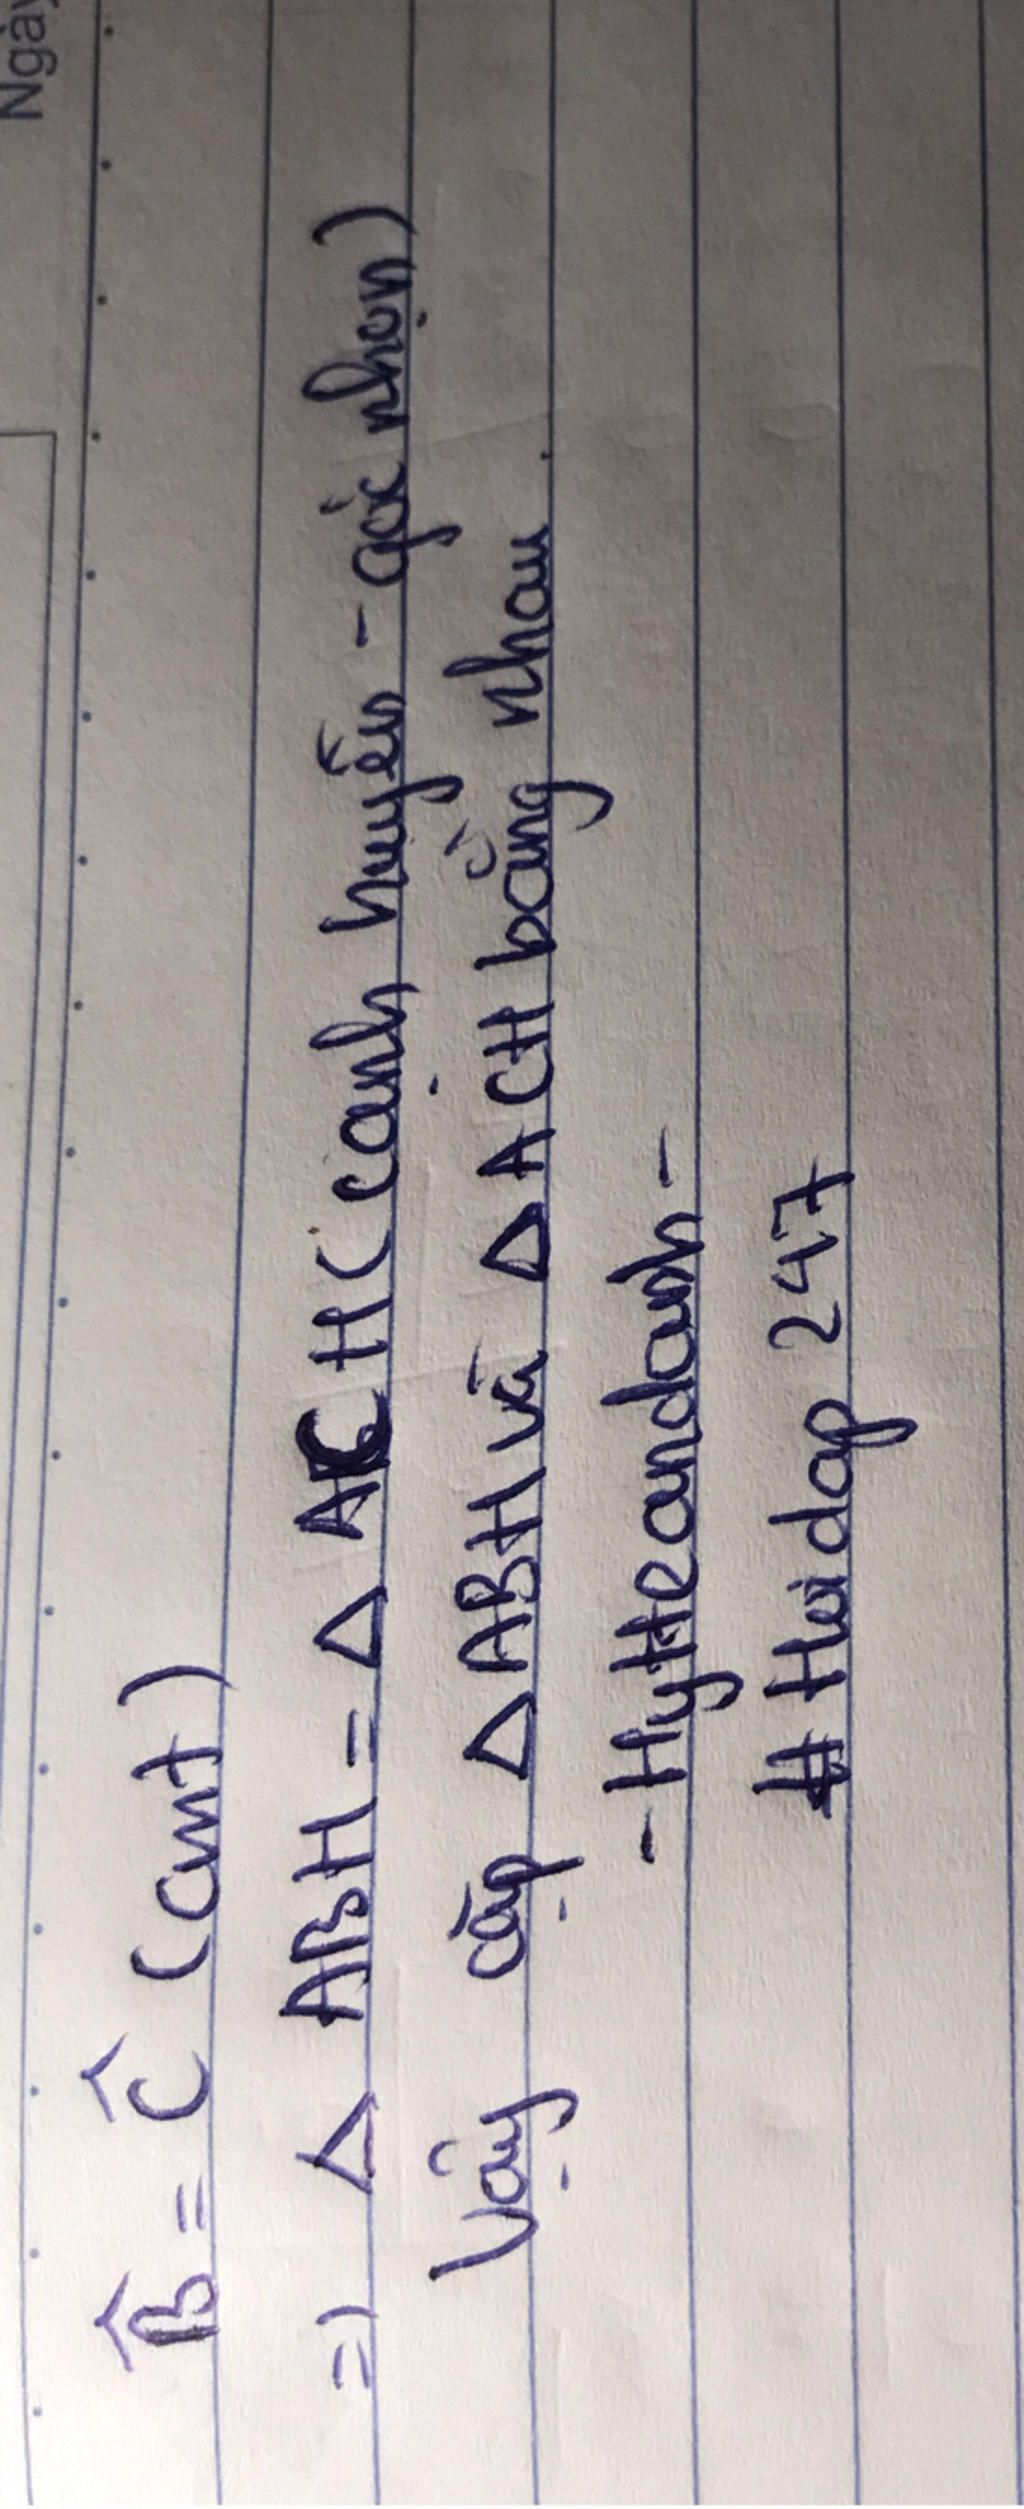 Ngày
B̂ = Ĉ (cmt)
=) Δ ABH = Δ ACH (cạnh huyền - góc nhọn)
Vậy cặp Δ ABH và Δ ACH bằng nhau.
- HyHeandanh -
# Hoidap 247